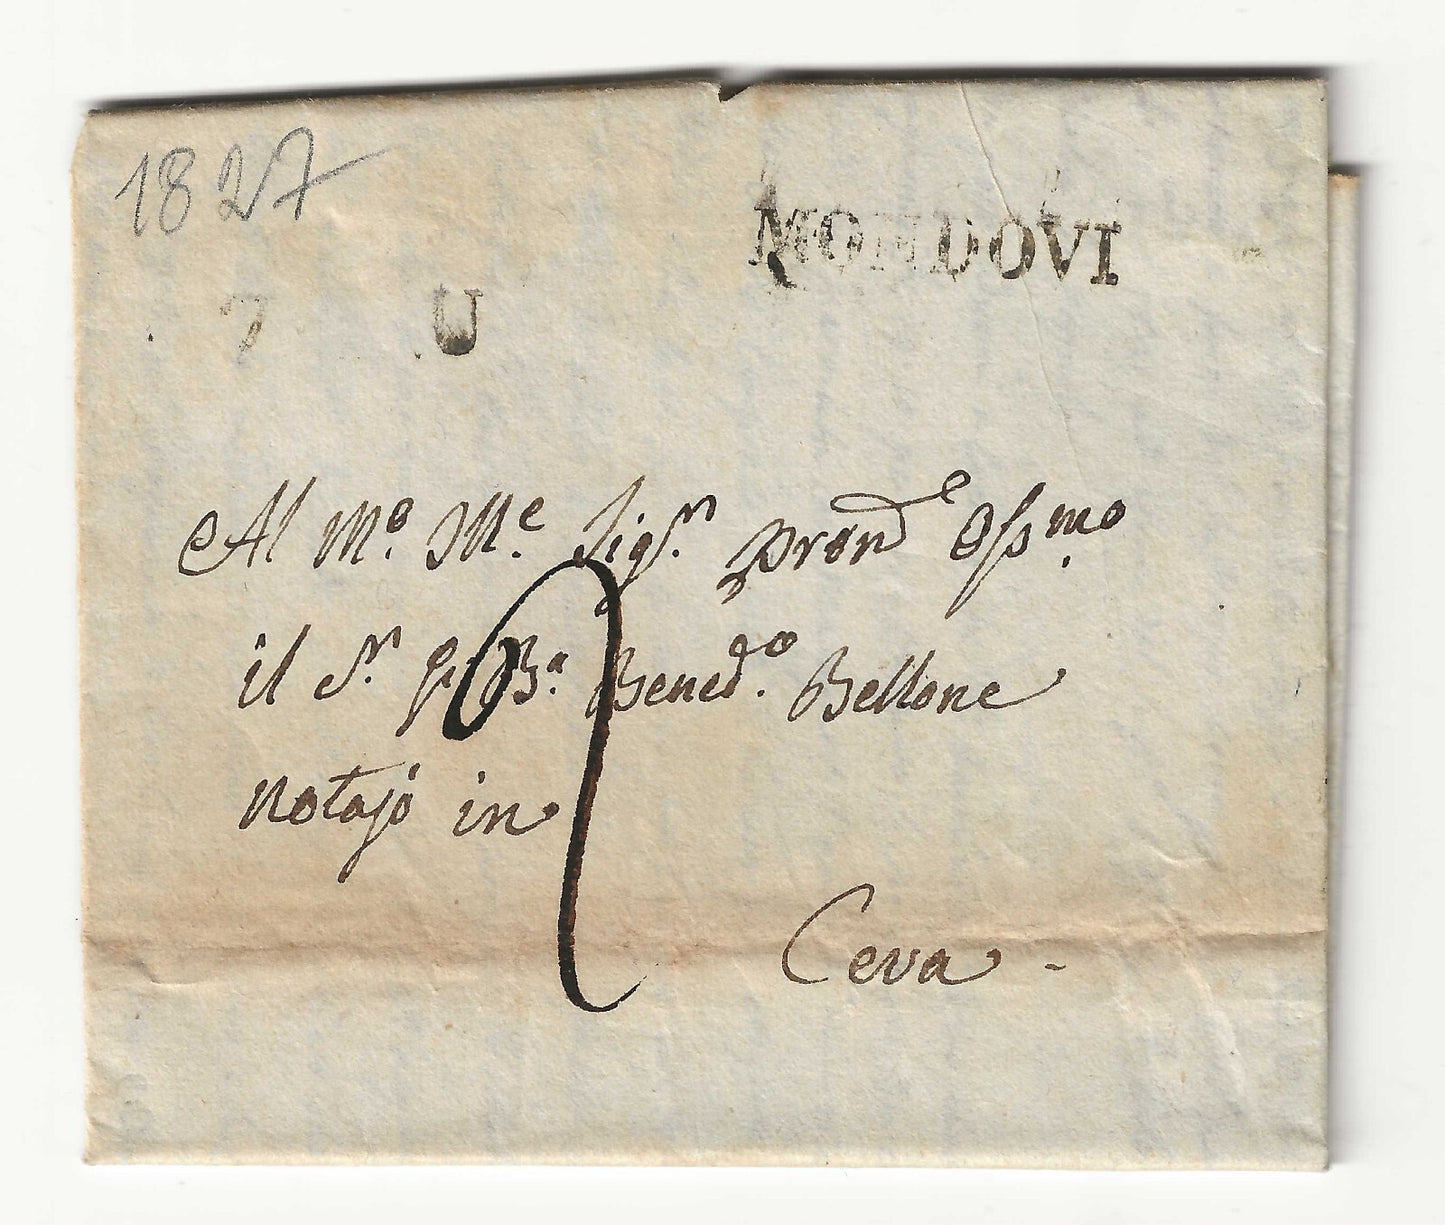 1827
MONDOVI
7 U
Al M.º M.e Sig.rn Pron.d Oss.mo
il S.rn Gi. B.a Bened.º Bellone
notajo in
2
Ceva -